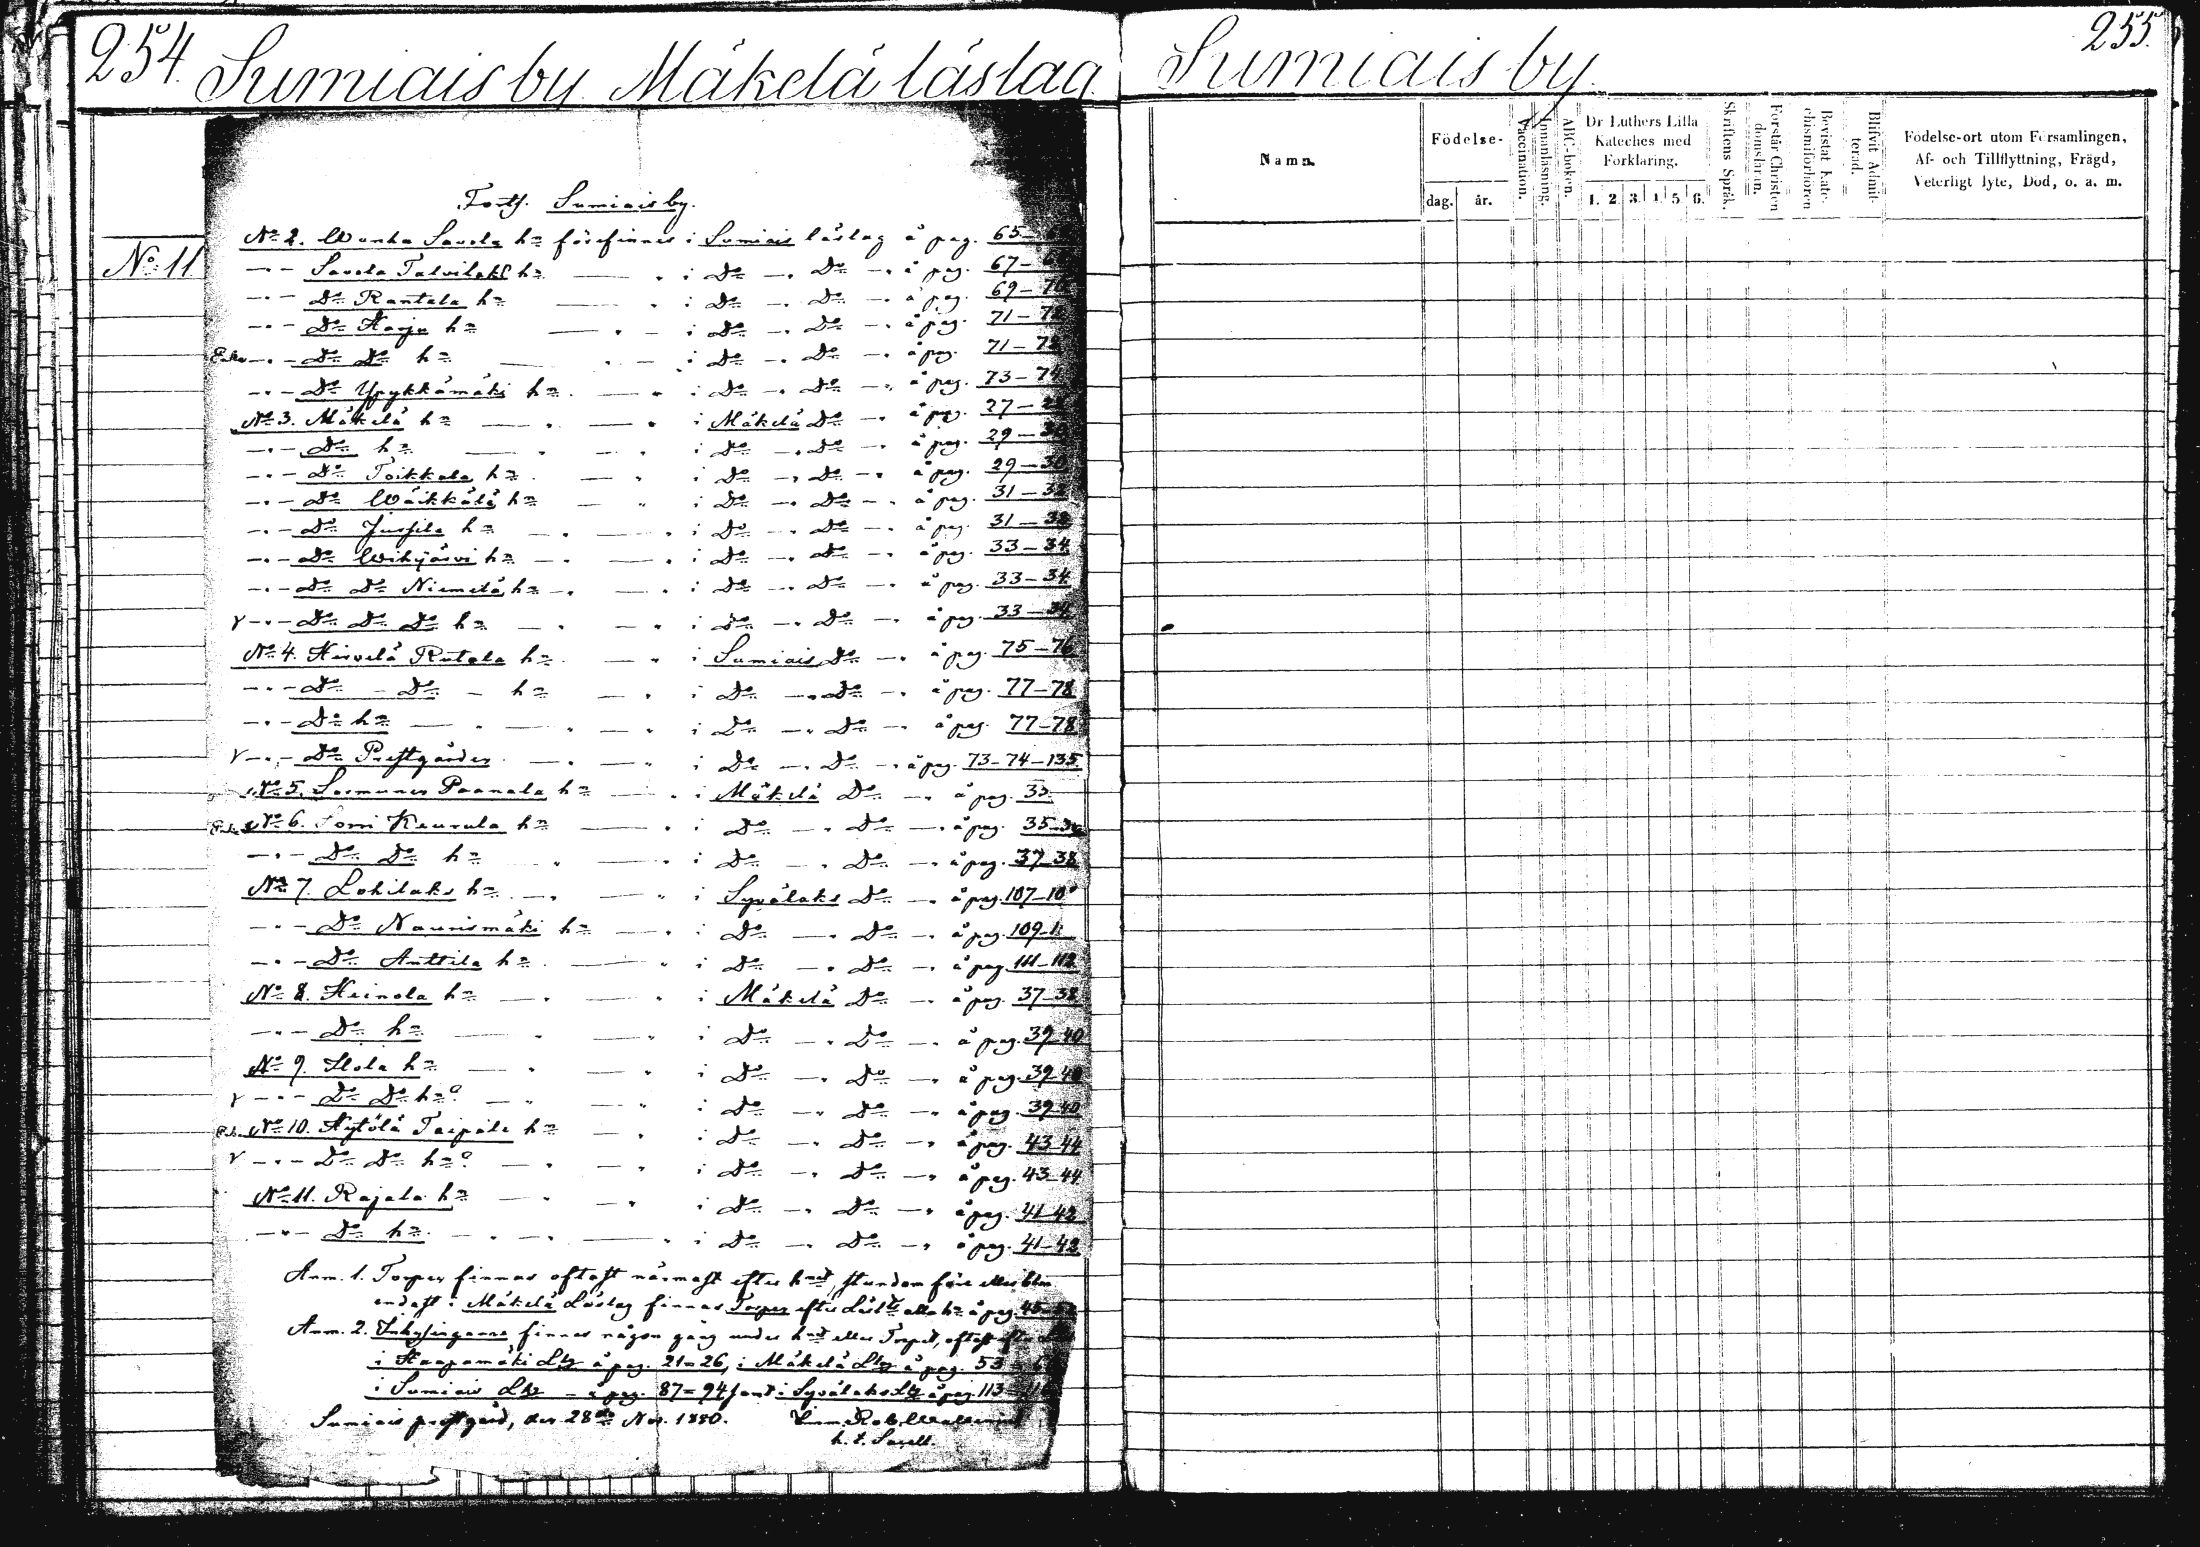 254. Sumiais by Mäkelä läslag.
Sumiais by
255.
No 11
Forts. Sumiais by.
No 2. Wanha Savela hn förefinnes i Sumiais läslag å pag. 65-
-"- Savela Talvilaks hn — " i Do -" Do -" å pag. 67-
-"- Do Rantala hn — " i Do -" Do -" å pag. 69-70
-"- Do Harju hn — " - i Do -" Do -" å pag. 71-72
-"- Do Do hn — " - i Do -" Do -" å pag. 71-72
-"- Do Ypykkämäki hn. — " i Do -" Do -" å pag. 73-74
No 3. Mäkelä hn — " — " i Mäkelä Do -" å pag. 27-28
-"- Do hn — " — " i Do -" Do -" å pag. 29-30
-"- Do Toikkala hn. — " i Do -" Do -" å pag. 29-30
-"- Do Wäikkälä hn — " i Do -" Do -" å pag. 31-32
-"- Do Jussila hn — " — " i Do -" Do -" å pag. 31-32
-"- Do Wihijärvi hn — " — " i Do -" Do -" å pag. 33-34
-"- Do Do Niemelä hn -" — " i Do -" Do -" å pag. 33-34
-"- Do Do Do hn — " — " i Do -" Do -" å pag. 33-34
No 4. Hirvelä Rutala hn. — " i Sumiais Do -" å pag. 75-76
-"- Do - Do - hn — " i Do -" Do -" å pag. 77-78
-"- Do hn — " — " — " i Do -" Do -" å pag. 77-78
-"- Do Prestgården. — " — " i Do -" Do -" å pag. 73-74-135.
No 5. Sormunen Paanala hn — " i Mäkelä Do -" å pag. 35
No 6. Tomi Keurula hn — " i Do -" Do -" å pag. 35-36
-"- Do Do hn — " — " i Do -" Do -" å pag. 37-38
No 7. Lohilaks hn. -" — " i Syvälaks Do -" å pag. 107-10
-"- Do Naurismäki hn — " i Do -" Do -" å pag. 109-1
-"- Do Anttila hn. — " i Do -" Do -" å pag. 111-112
No 8. Heinola hn — " — " i Mäkelä Do -" å pag. 37-38
-"- Do hn — " — " i Do -" Do -" å pag. 39-40
No 9. Ilola hn — " — " i Do -" Do -" å pag. 39-40
-"- Do Do hn? — " — " i Do -" Do -" å pag. 39-40
No 10. Hytölä Taipale hn — " i Do -" Do -" å pag. 43-44
-"- Do Do hn? — " — " i Do -" Do -" å pag. 43-44
No 11. Rajala hn — " — " i Do -" Do -" å pag. 41-42
-"- Do hn. — " -" — " i Do -" Do -" å pag. 41-42
Anm. 1. Torper finnas oftast närmast efter hnet, stundom före eller
endast i Mäkelä Läslag finnas Torper efter alla hn å pag. 45-52
Anm. 2. Inhysingarne finnas någon gång under hnet eller Torpet, oftast efter
i Haapamäki Llg å pag. 21-26, i Mäkelä Llg å pag. 53-
i Sumiais Llg - å pag. 87-94 samt i Syvälaks Llg å pag. 113-
Sumiais prestgård, den 28de Nov. 1880.
h. t. Sacell.
Namn.
Födelse-
dag. år.
Vaccination.
Innanläsning.
ABC-boken.
Dr Luthers Lilla
Kateches med
Förklaring.
1. 2. 3. 4. 5. 6.
Skriftens Språk.
Förstår Christendomsläran.
Bevistat Katechismiförhören
Blifvit Admitterad.
Födelse-ort utom Församlingen,
Af- och Tillflyttning, Frägd,
Veterligt lyte, Död, o. a. m.